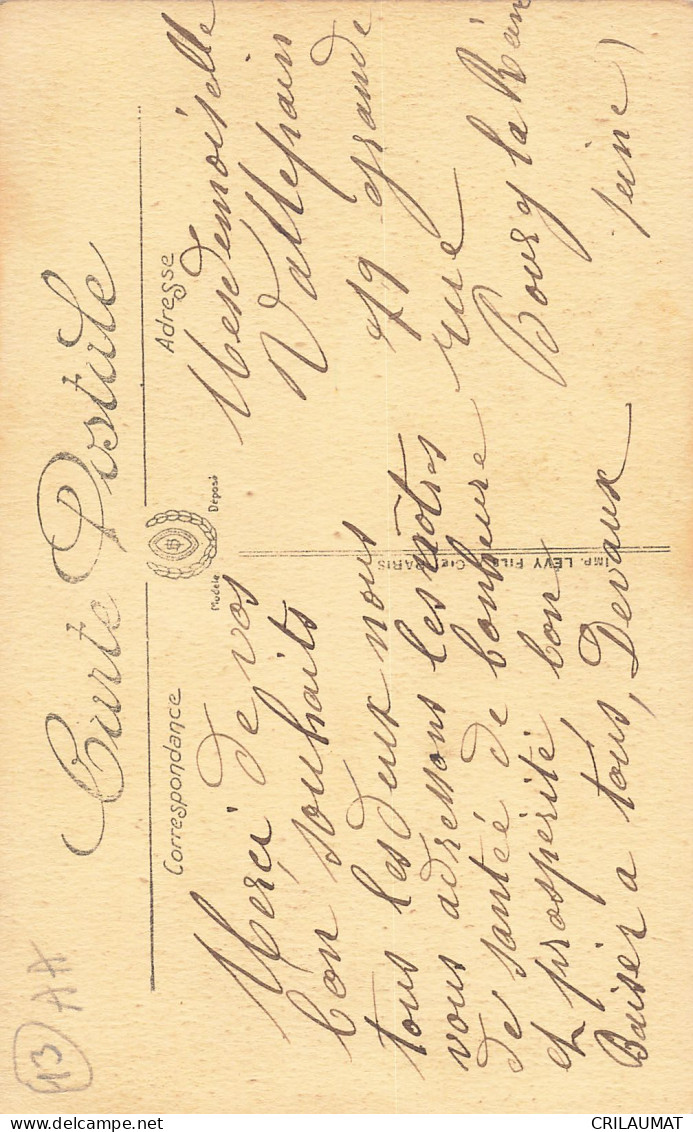 Carte Postale
Correspondance
Adresse
Modèle
Déposé
Merci de vos
bon souhaits
tous les deux nous
vous adressons les nôtres
de santée de bonheure
et prospérité bon
Baiser a tous, Devaux
Mesdemoiselle
Vallefrain
79 grande
rue
Bourg la Rein
seine)
IMP. LEVY FILS & Cie PARIS
13
AA
CRILAUMAT